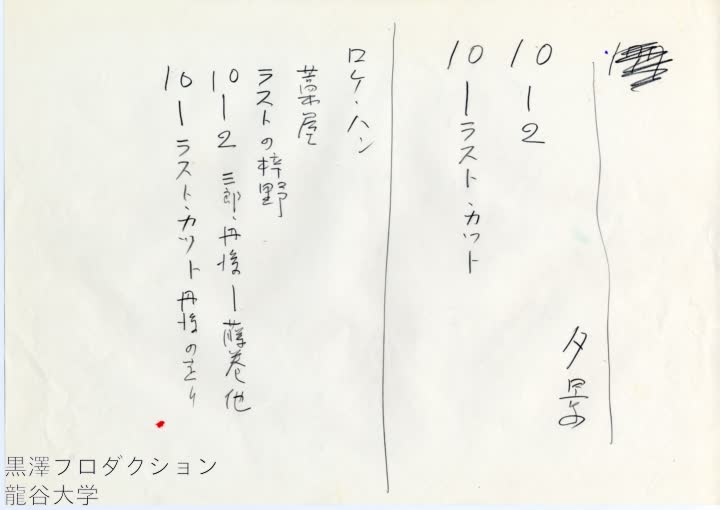 夕景
10-2
10-ラスト・カット
ロケ・ハン
藁屋
ラストの梓野
10-2 三郎・丹後-藤巻他
10-ラスト・カット 丹後のぞり
黒澤フロダクション
龍谷大学